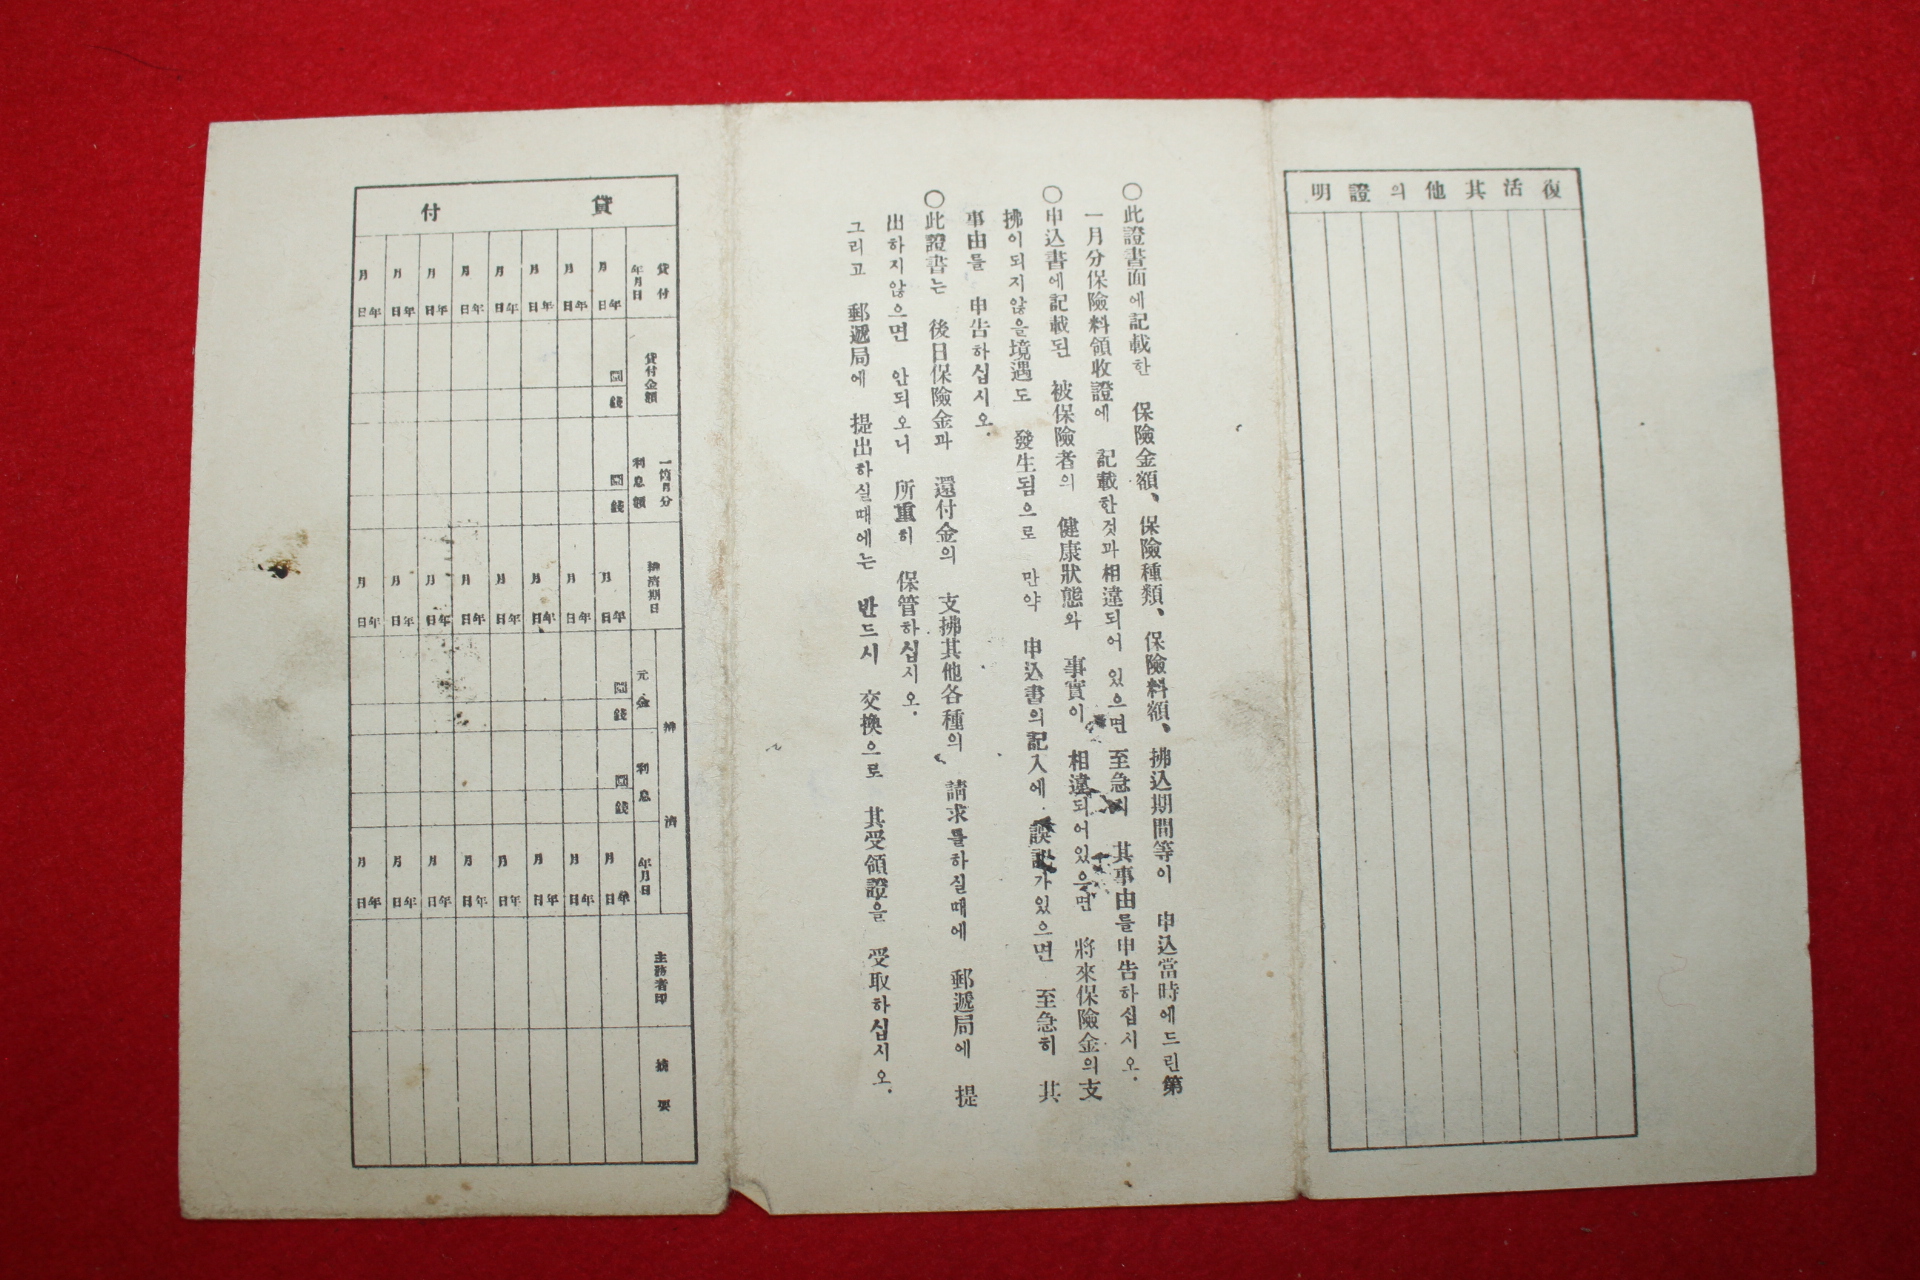 復活其他의證明
○此證書面에記載한 保險金額、保險種類、保險料額、拂込期間等이 申込當時에드린第
一月分保險料領收證에 記載한것과相違되어 있으면 至急히 其事由를申告하십시오.
○申込書에記載된 被保險者의 健康狀態와 事實이 相違되어있으면 將來保險金의支
拂이되지않을境遇도 發生됨으로 만약 申込書의記入에 誤記가있으면 至急히 其
事由를 申告하십시오.
○此證書는 後日保險金과 還付金의 支拂其他各種의 請求를하실때에 郵遞局에 提
出하지않으면 안되오니 所重히 保管하십시오.
그리고 郵遞局에 提出하실때에는 반드시 交換으로 其受領證을 受取하십시오.
貸付
貸付
年月日
貸付金額
一箇月分
利息額
辨濟期日
辨濟
元金
利息
年月日
主務者印
摘要
年月日 圓錢 圓錢 年月日 圓錢 圓錢 年月日
年月日 年月日 年月日
年月日 年月日 年月日
年月日 年月日 年月日
年月日 年月日 年月日
年月日 年月日 年月日
年月日 年月日 年月日
年月日 年月日 年月日